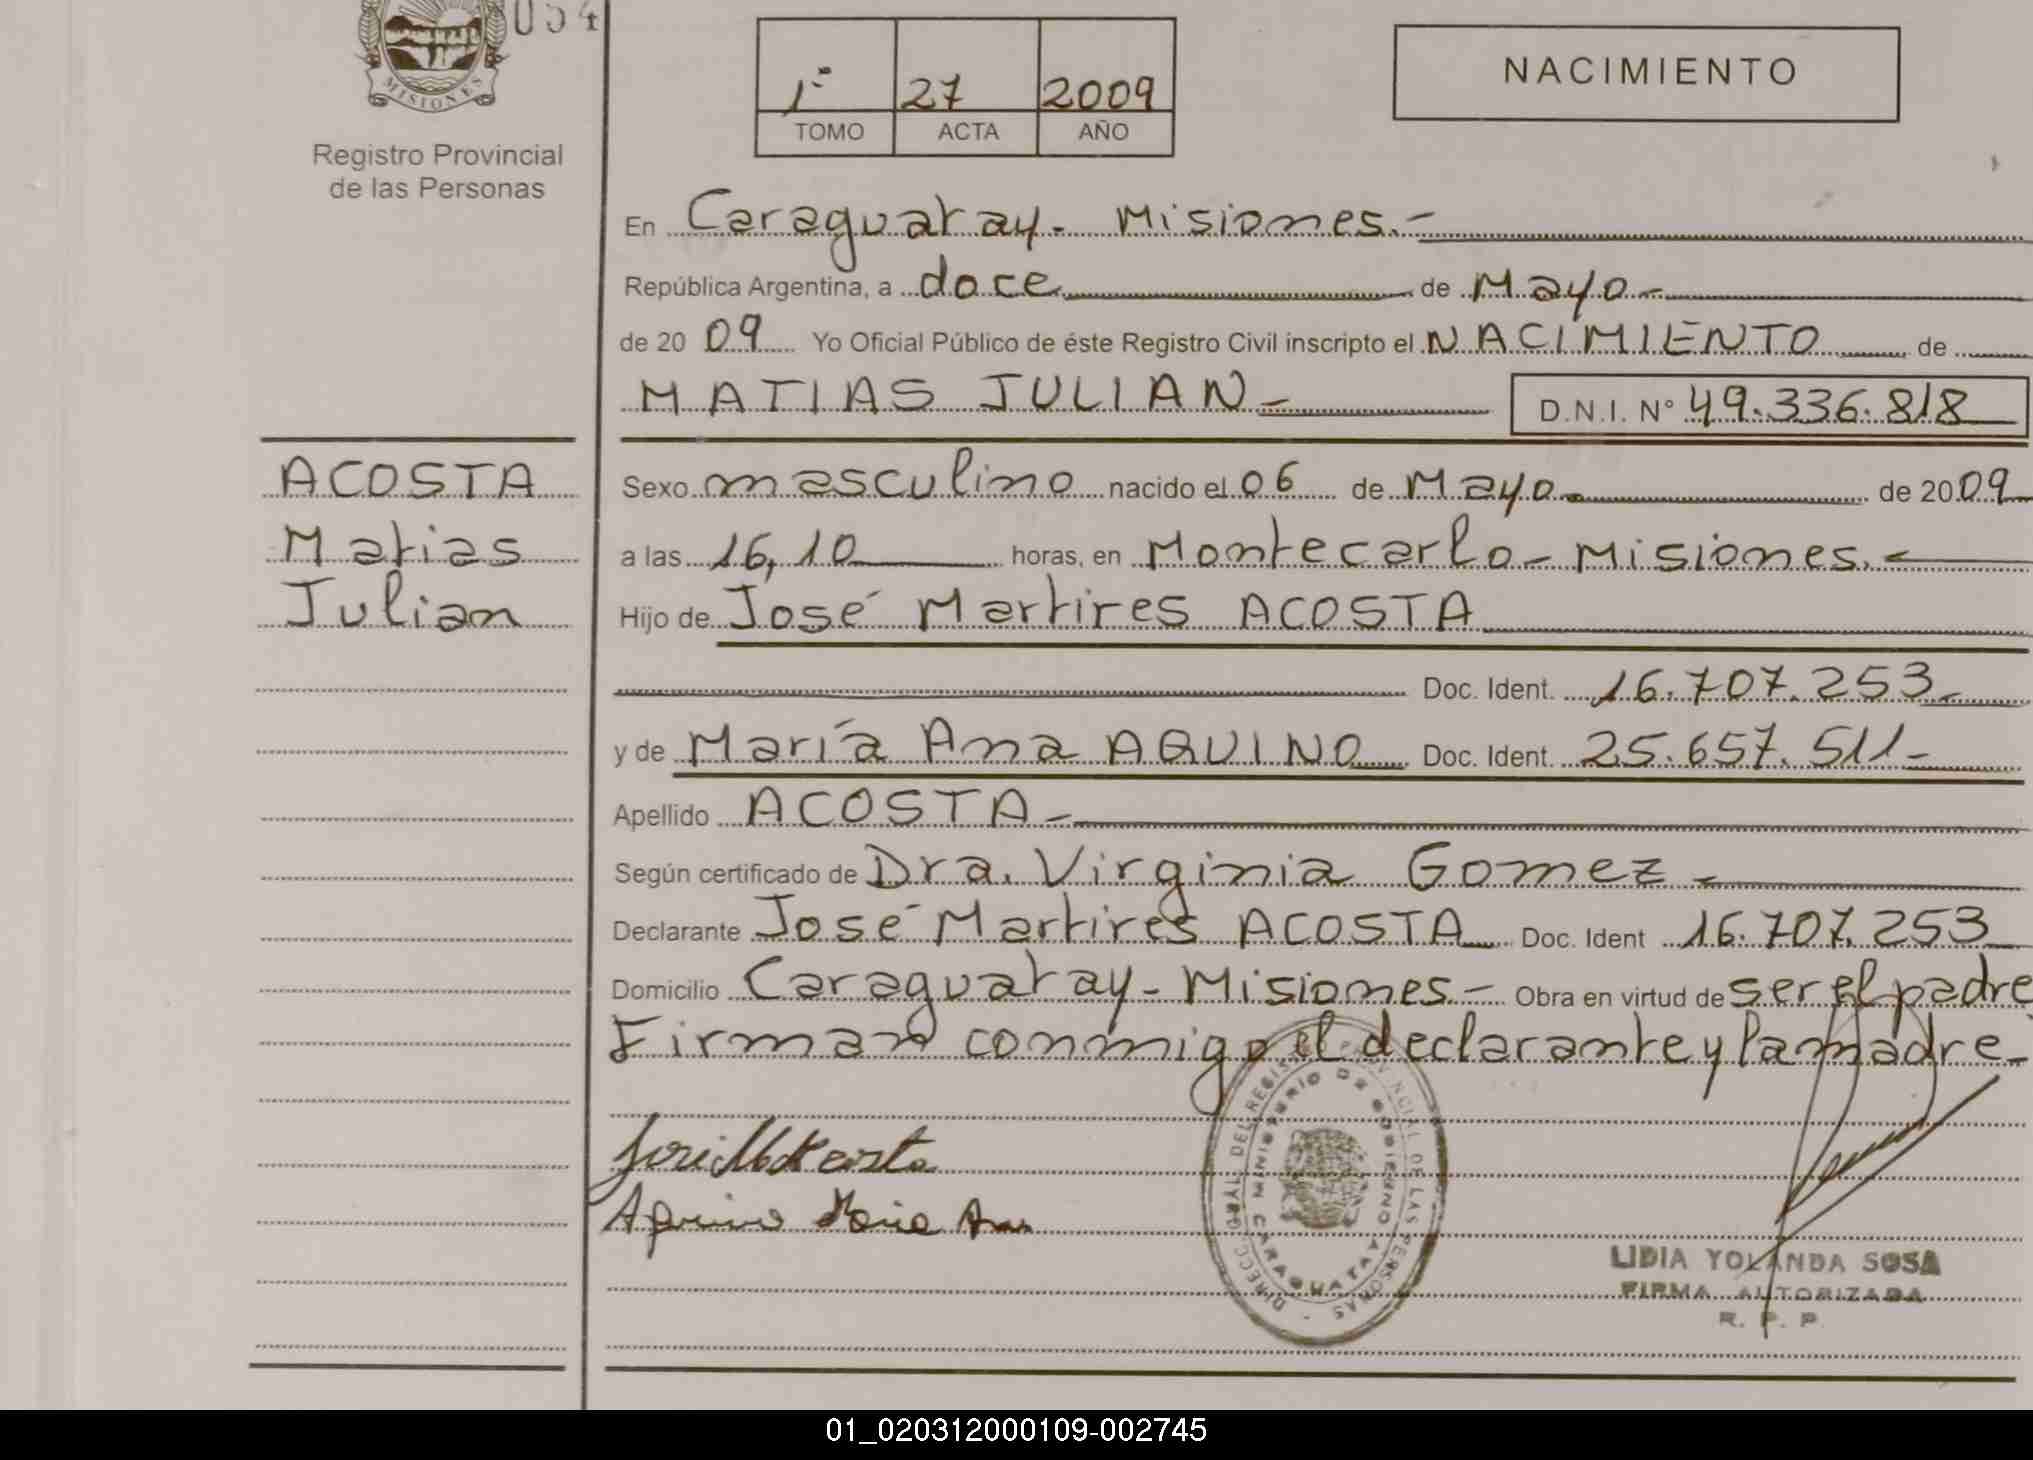 054
MISIONES
Registro Provincial
de las Personas
1º 27 2009
TOMO ACTA AÑO
NACIMIENTO
En Caraguatay - Misiones.-
República Argentina, a doce de Mayo-
de 2009 Yo Oficial Público de éste Registro Civil inscripto el NACIMIENTO de
MATIAS JULIAN- D.N.I. Nº 49.336.818
ACOSTA
Matias
Julian
Sexo masculino nacido el 06 de Mayo de 2009
a las 16,10 horas, en Montecarlo - Misiones.-
Hijo de José Martires ACOSTA
Doc. Ident. 16.707.253-
y de María Ana AQUINO Doc. Ident. 25.657.511-
Apellido ACOSTA-
Según certificado de Dra. Virginia Gomez -
Declarante José Martires ACOSTA Doc. Ident 16.707.253
Domicilio Caraguatay - Misiones - Obra en virtud de ser el padre
Firman conmigo el declarante y la madre-
José M Acosta
Aquino Maria Ana
DIRECC. GRAL. DEL REGISTRO PROVINCIAL DE LAS PERSONAS -
MINISTERIO DE GOBIERNO
CARAGUATAY
LIDIA YOLANDA SOSA
FIRMA AUTORIZADA
R. P. P
01_020312000109-002745